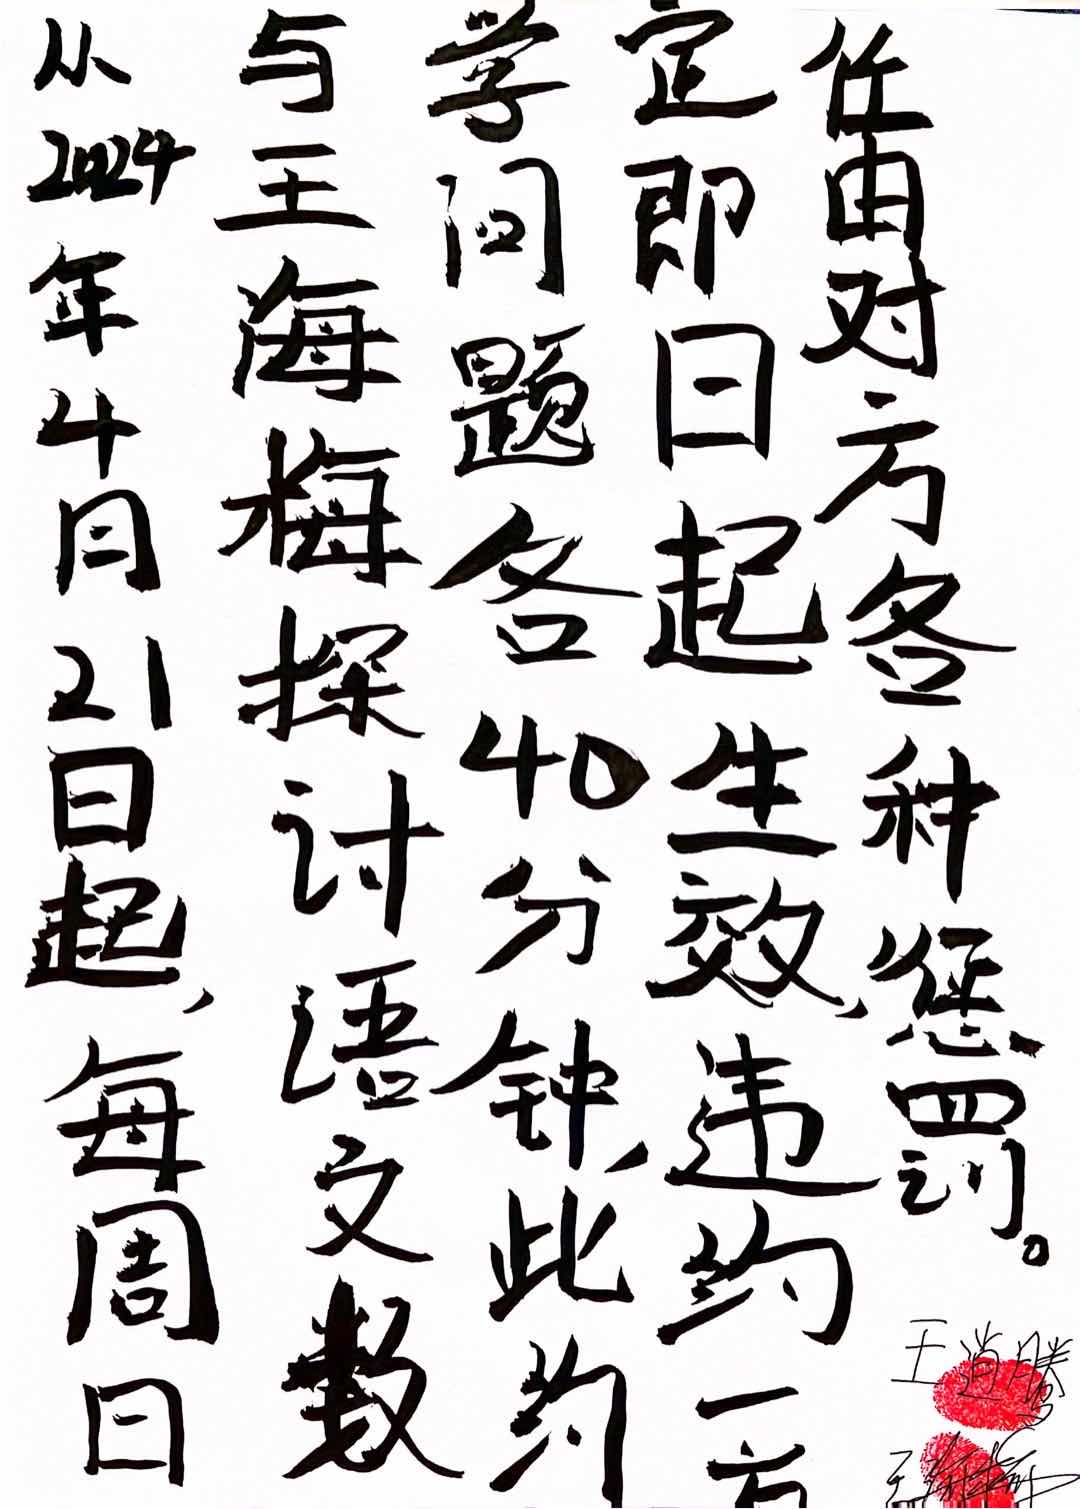 从2024年4月21日起，每周日
与王海梅探讨语文数
学问题各40分钟，此约
定即日起生效，违约一方
任由对方各种惩罚。
王逍腾